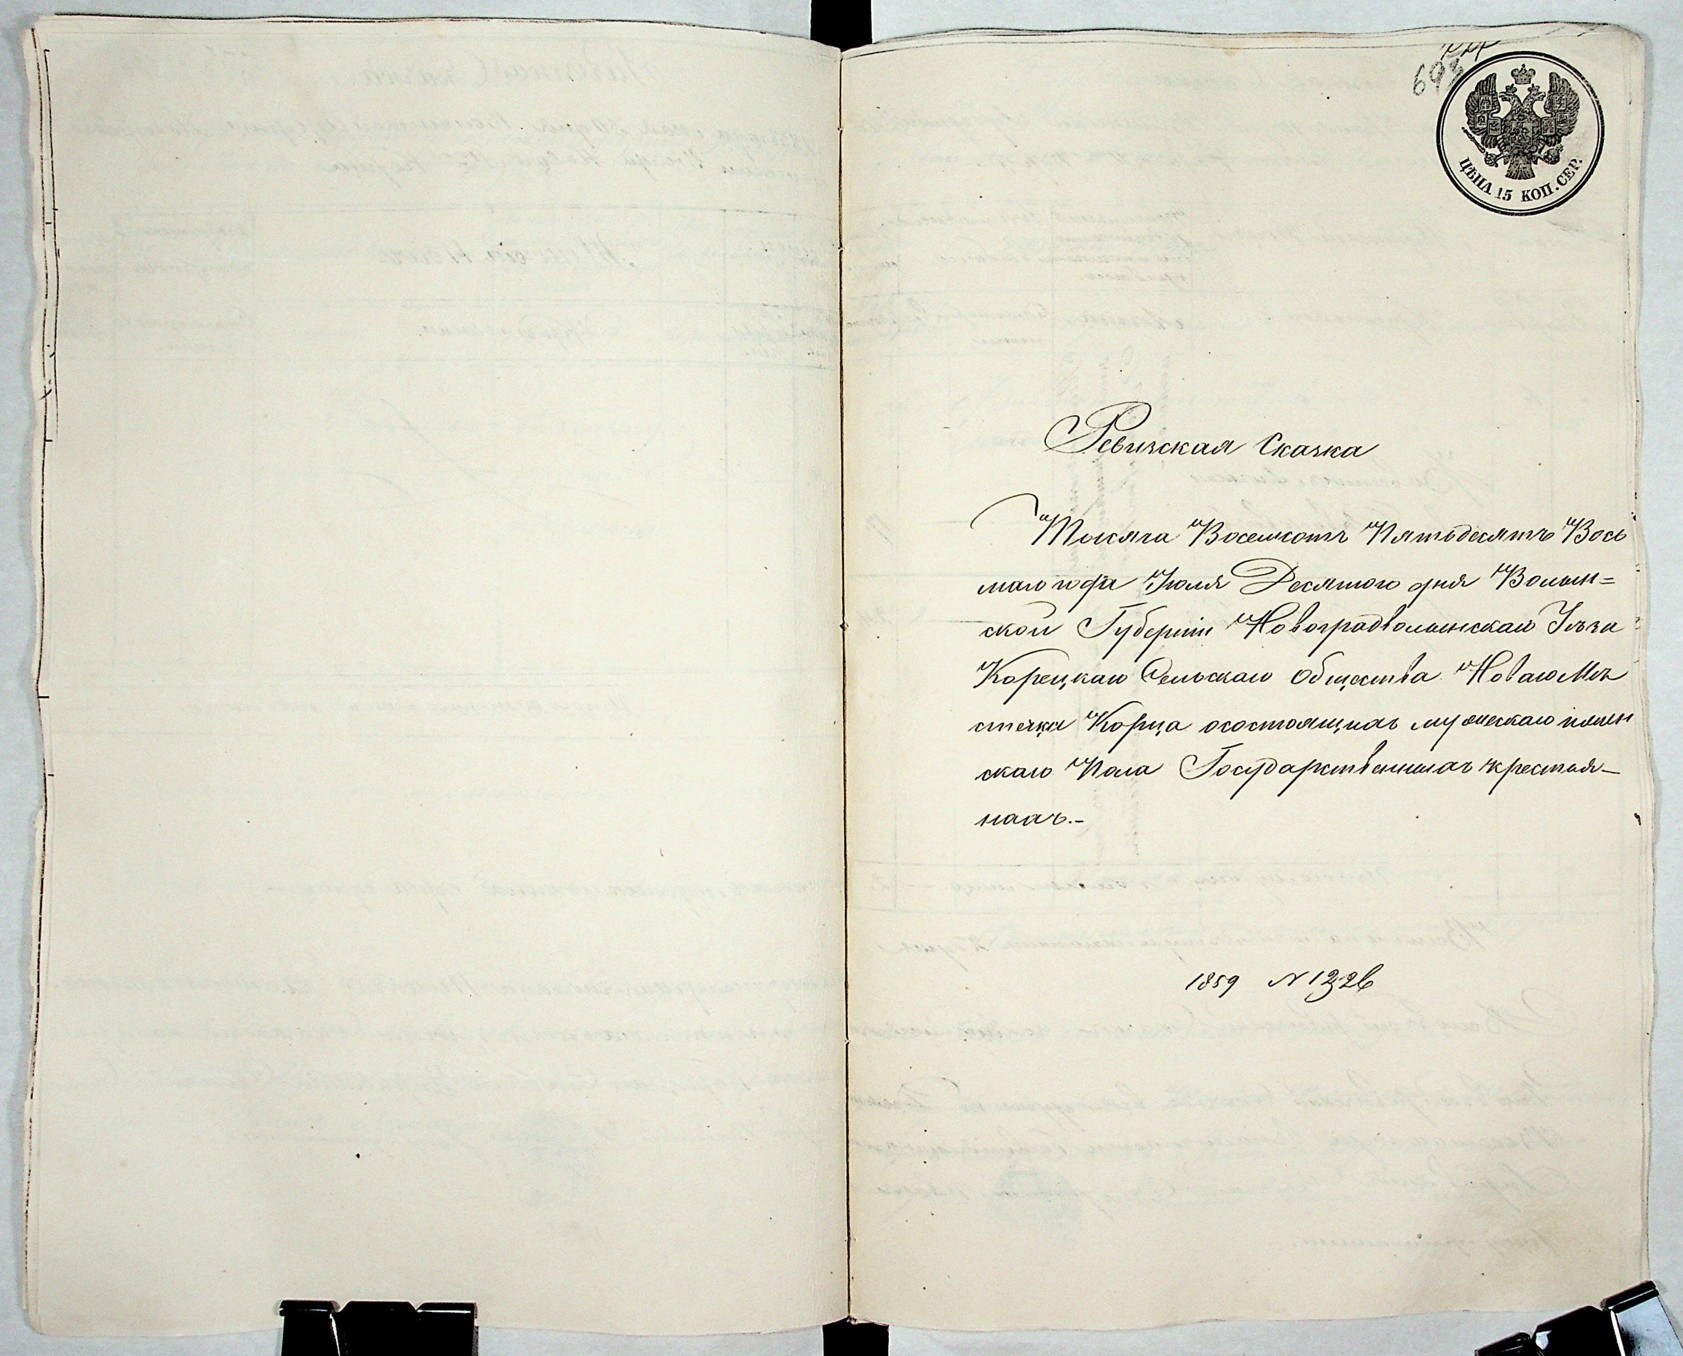 ЦѢНА 15 КОП. СЕР.
Ревизская Сказка
Тысяча Восемсотъ Пятьдесятъ Вось
маго года Іюля Десятого дня Волын=
ской Губерніи Новоградволынскаго Уѣзда
Корецкаго Сельскаго Общества Новаго Мѣ
стечка Корца осостоящихъ мужескаго ижен
скаго Пола Государственныхъ крестья–
нахъ.–
1859 N